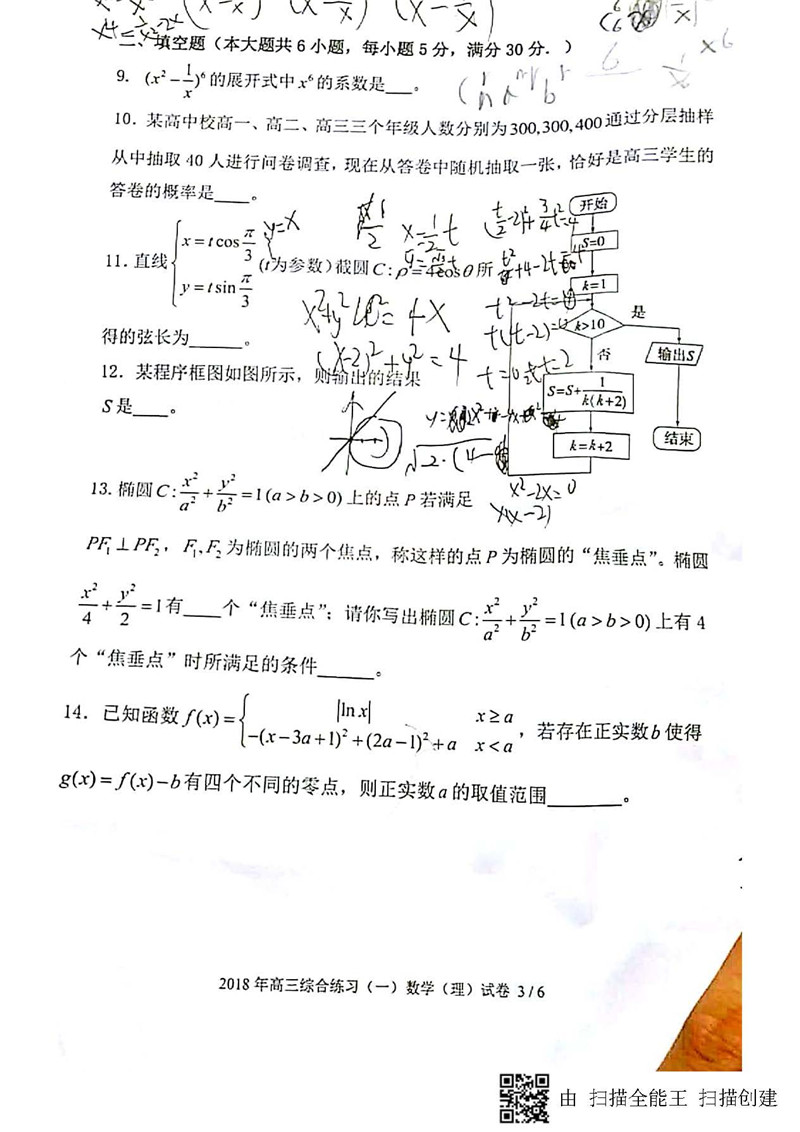 二、填空题（本大题共 6 小题，每小题 5 分，满分 30 分．）
9. (x² − 1/x)⁶ 的展开式中 x⁶ 的系数是___。
10. 某高中校高一、高二、高三三个年级人数分别为 300,300,400 通过分层抽样
从中抽取 40 人进行问卷调查，现在从答卷中随机抽取一张，恰好是高三学生的
答卷的概率是____。
11. 直线 { x = t cos π/3
y = t sin π/3 (t为参数) 截圆 C: ρ = 4cosθ 所
得的弦长为______。
y=x
x=1/2 t
x²+y² = 4x
(x-2)²+y²=4
12. 某程序框图如图所示，则输出的结果
S 是____。
开始
S=0
k=1
k>10
是
否
输出S
S=S+1/k(k+2)
k=k+2
结束
t(t-2)=
x²-2x=0
x(x-2)
13. 椭圆 C: x²/a² + y²/b² = 1 (a > b > 0) 上的点 P 若满足
PF₁ ⊥ PF₂，F₁,F₂ 为椭圆的两个焦点，称这样的点 P 为椭圆的“焦垂点”。椭圆
x²/4 + y²/2 = 1 有____个“焦垂点”；请你写出椭圆 C: x²/a² + y²/b² = 1 (a > b > 0) 上有 4
个“焦垂点”时所满足的条件______。
14. 已知函数 f(x) = { |ln x| x ≥ a
−(x−3a+1)² + (2a−1)² + a x < a ，若存在正实数 b 使得
g(x) = f(x) − b 有四个不同的零点，则正实数 a 的取值范围________。
2018 年高三综合练习（一）数学（理）试卷 3 / 6
由 扫描全能王 扫描创建